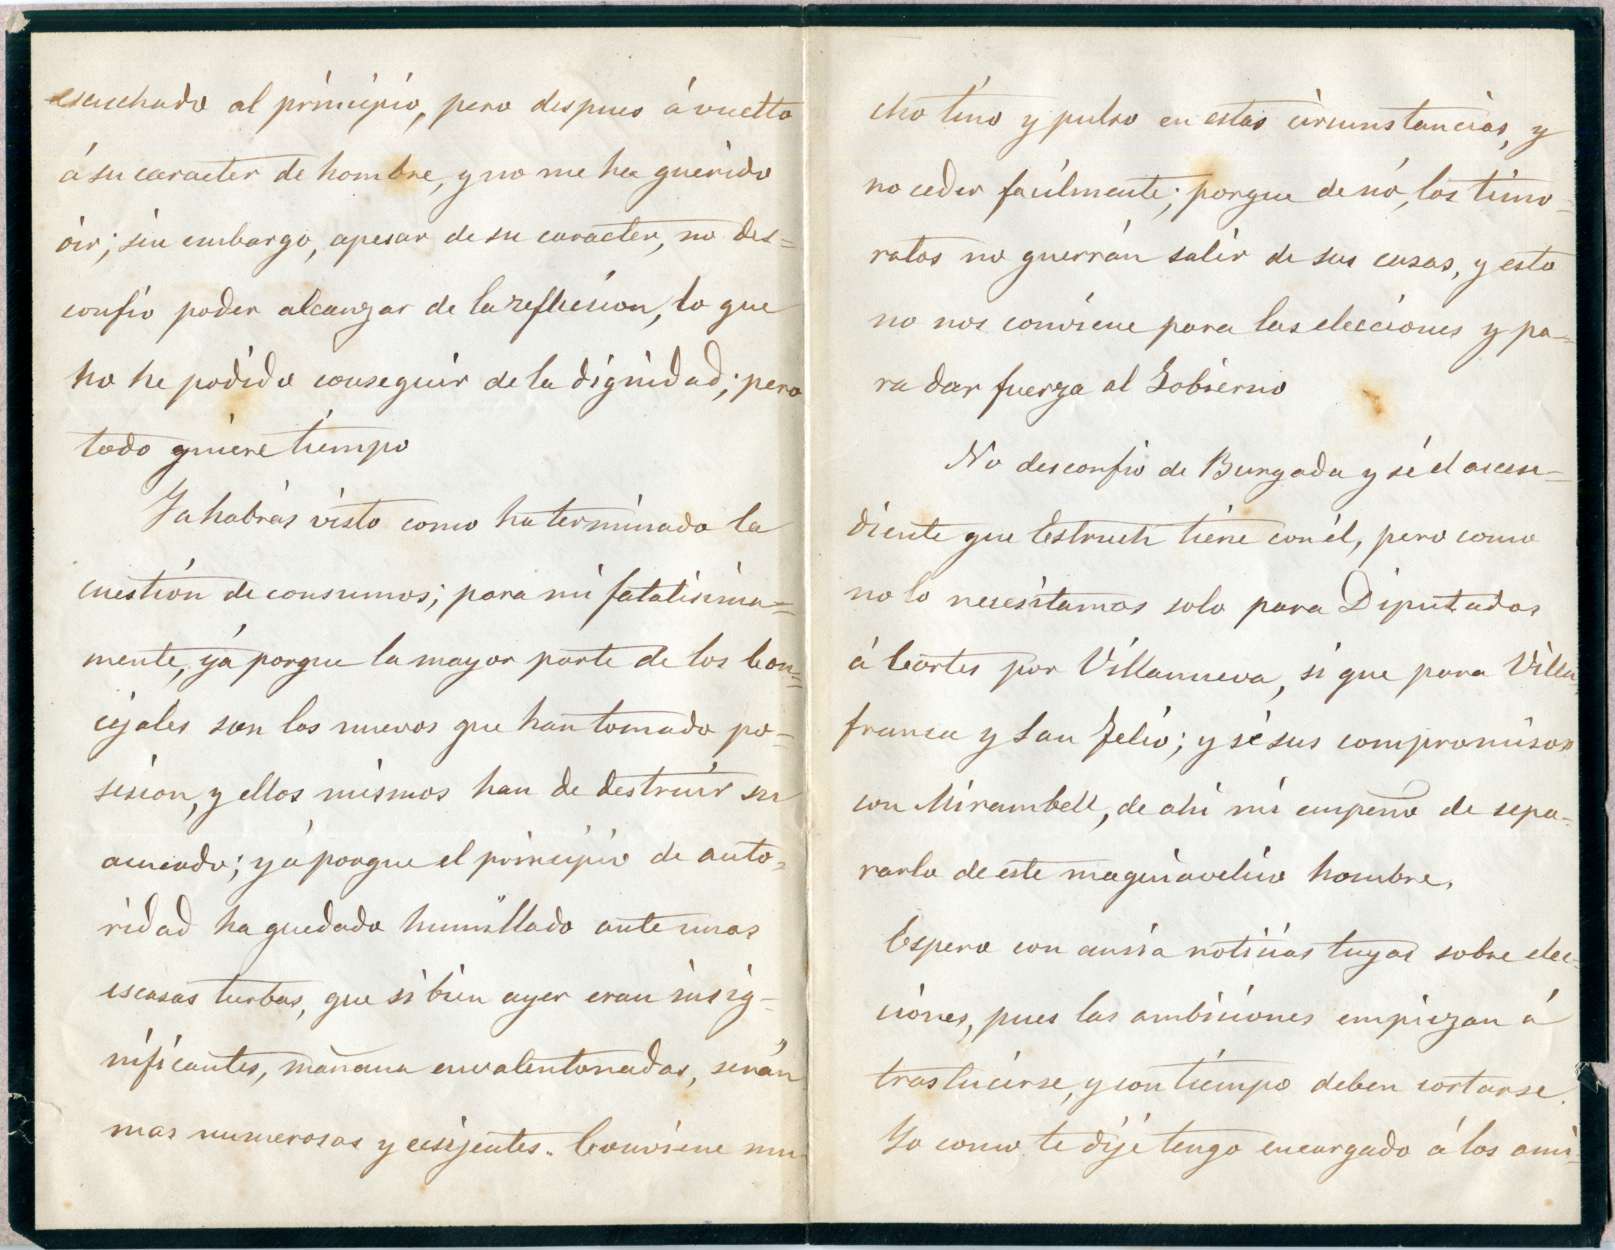 escuchado al principio, pero despues á vuelto
á su caracter de hombre, y no me ha querido
oir; sin embargo, apesar de su caracter, no des=
confio poder alcanzar de la reflecsion, lo que
no he podido conseguir de la dignidad; pero
todo quiere tiempo
Ya habrás visto como ha terminado la
cuestión de consumos; para mi fatalisima=
mente, yá porque la mayor parte de los Con=
cejales son los nuevos que han tomado po=
sesion, y ellos mismos han de destruir su
acuerdo; yá porque el principio de auto=
ridad ha quedado humillado ante unas
escasas turbas, que si bien ayer eran insig=
nificantes, mañana envalentonadas, serán
mas numerosas y ecsijentes. Conviene mu
cho tino y pulso en estas circunstancias, y
no ceder facilmente; porque de nó, los timo=
ratos no querrán salir de sus casas, y esto
no nos conviene para las elecciones y pa=
ra dar fuerza al Gobierno
No desconfio de Burgada y sé el ascen=
diente que Estruch tiene con él, pero como
no lo necesitamos solo para Diputados
á Cortes por Villanueva, si que para Villa
franca y San Feliu; y sé sus compromisos
con Mirambell, de ahi mi empeño de sepa=
rarlo de este maquiavelico hombre.
Espero con ansia noticias tuyas sobre elec=
ciones, pues las ambiciones empiezan á
traslucirse, y con tiempo deben cortarse.
Yo como te dije tengo encargado á los ami=